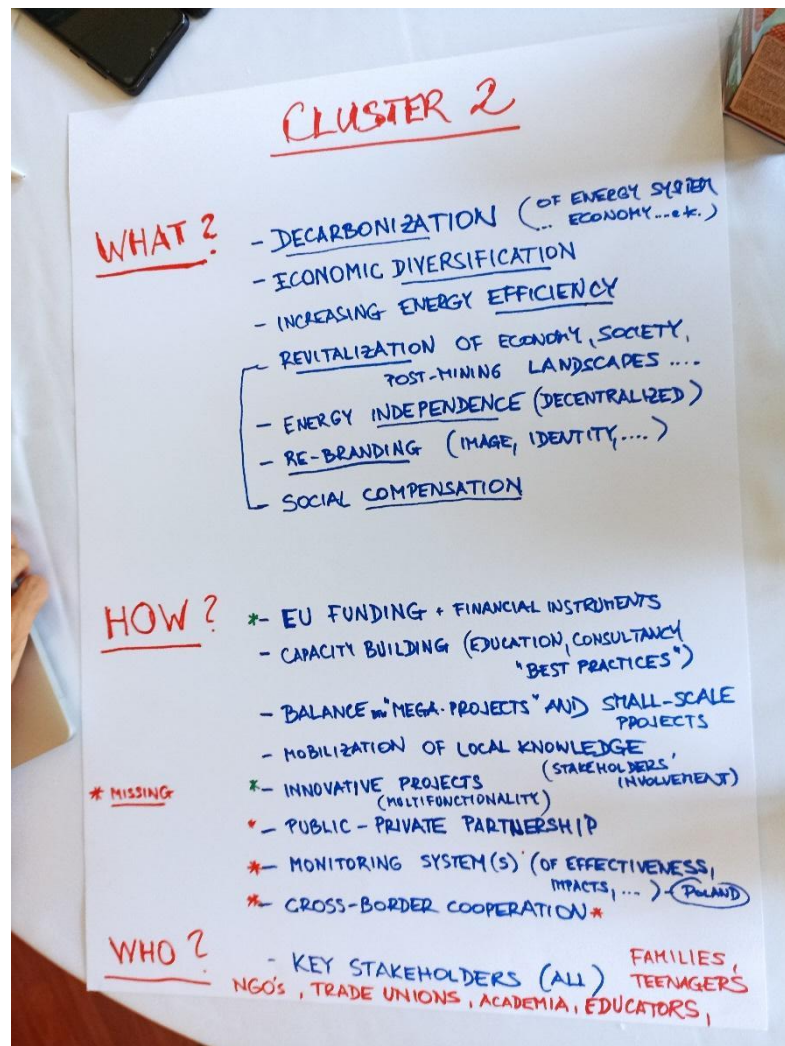 CLUSTER 2
WHAT? - DECARBONIZATION (OF ENERGY SYSTEM
... ECONOMY...etc.)
- ECONOMIC DIVERSIFICATION
- INCREASING ENERGY EFFICIENCY
- REVITALIZATION OF ECONOMY, SOCIETY,
POST-MINING LANDSCAPES ....
- ENERGY INDEPENDENCE (DECENTRALIZED)
- RE-BRANDING (IMAGE, IDENTITY,....)
- SOCIAL COMPENSATION
HOW? *- EU FUNDING + FINANCIAL INSTRUMENTS
- CAPACITY BUILDING (EDUCATION, CONSULTANCY
"BEST PRACTICES")
- BALANCE "MEGA-PROJECTS" AND SMALL-SCALE
PROJECTS
- MOBILIZATION OF LOCAL KNOWLEDGE
(STAKEHOLDERS'
INVOLVEMENT)
* MISSING
*- INNOVATIVE PROJECTS
(MULTIFUNCTIONALITY)
*- PUBLIC-PRIVATE PARTNERSHIP
*- MONITORING SYSTEM(S) (OF EFFECTIVENESS,
IMPACTS, ...) - POLAND
*- CROSS-BORDER COOPERATION *
WHO? - KEY STAKEHOLDERS (ALL) FAMILIES,
TEENAGERS
NGO's, TRADE UNIONS, ACADEMIA, EDUCATORS,